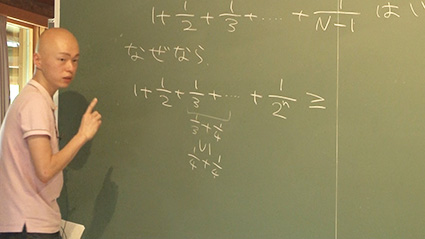 1+1/2+1/3+……+1/(N-1) はい
なぜなら
1+1/2+1/3+…+1/2ⁿ ≥
1/3+1/4
∨|
1/4+1/4